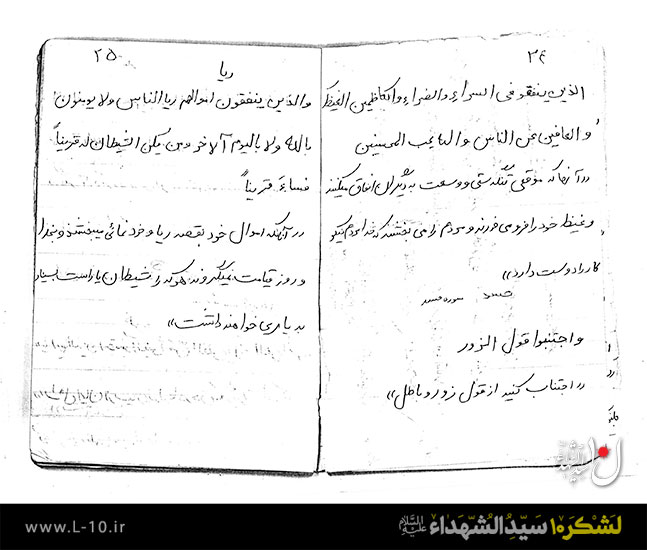 ۲۴
الذین ینفقو فی السراء والضراء والکاظمین الغیظ
والعافین عن الناس والله یحب المحسنین
«آنها که موقع تنگدستی و وسعت به دیگران انفاق میکنند
و غیظ خود را فرو می خورند و مردم را می بخشند که خدا مردم نیکو
کار را دوست دارد»
واجتنبوا قول الزور
«اجتناب کنید از قول زور و باطل»
۲۵
ریا
والذین ینفقون اموالهم ریا الناس ولا یومنون
بالله ولا بالیوم آلاخر ومن یکن الشیطان له قریناً
فساءَ قریناً
«آنهاکه اموال خود بقصد ریا و خودنمائی میبخشند و بخدا
و روز قیامت نمیگروند هر که را شیطان یار است بسیار
بد یاری خواهند داشت»
www.L-10.ir
لشکر۱۰ سَیِّدُالشُهَداءِ عَلَیْهِ السَّلام